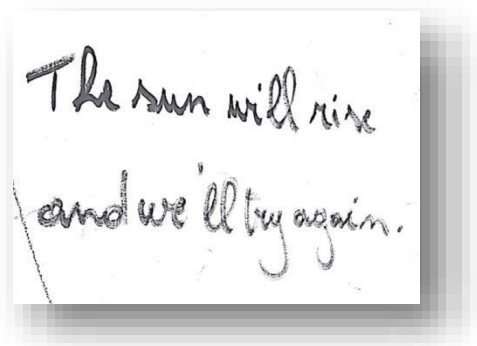 The sun will rise
and we'll try again.